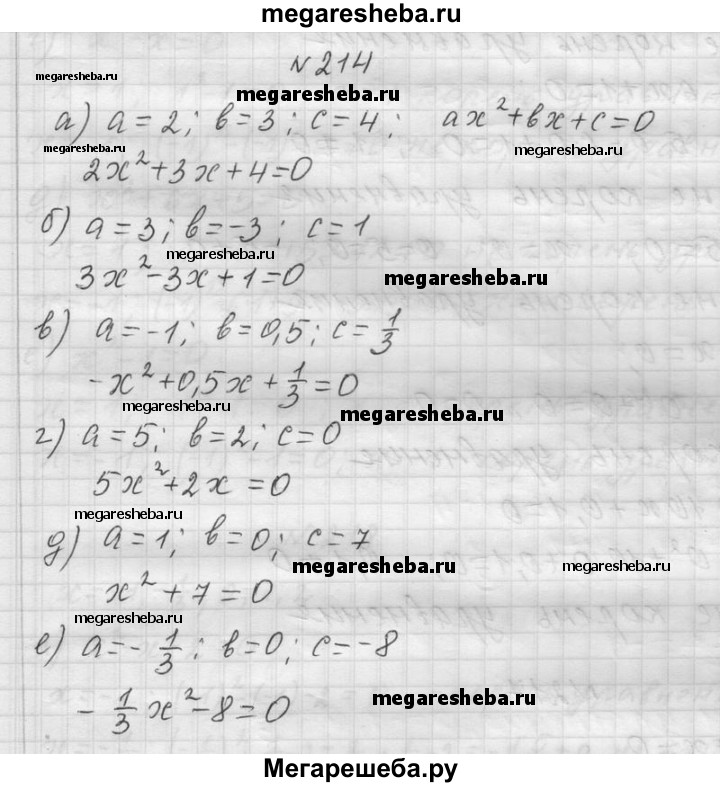 megaresheba.ru
№ 214
megaresheba.ru
megaresheba.ru
а) a = 2; b = 3; c = 4; ax² + bx + c = 0
megaresheba.ru megaresheba.ru
2x² + 3x + 4 = 0
б) a = 3; b = -3; c = 1
megaresheba.ru
3x² - 3x + 1 = 0 megaresheba.ru
в) a = -1; b = 0,5; c = 1/3
-x² + 0,5x + 1/3 = 0
megaresheba.ru megaresheba.ru
г) a = 5; b = 2; c = 0
5x² + 2x = 0
megaresheba.ru
д) a = 1; b = 0; c = 7
megaresheba.ru megaresheba.ru
x² + 7 = 0
megaresheba.ru
е) a = -1/3; b = 0; c = -8
megaresheba.ru
-1/3 x² - 8 = 0
Мегарешеба.ру